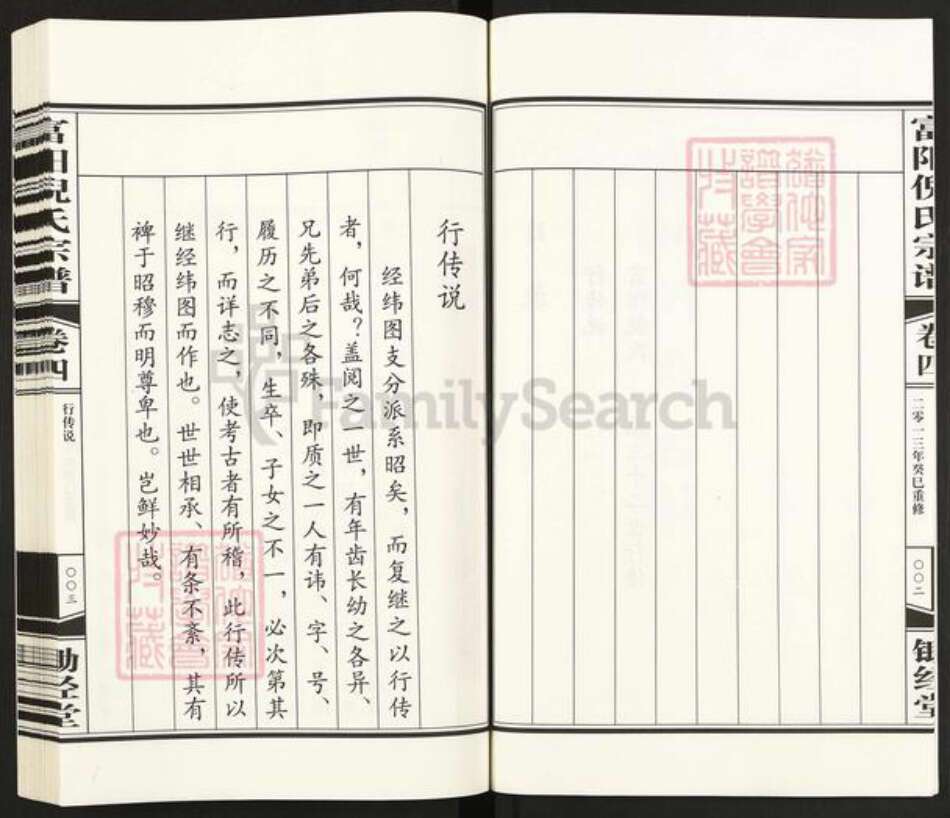 富阳倪氏宗谱
卷四
二零一三年癸巳重修
〇〇二
行传说
经纬图支分派系昭矣，而复继之以行传
者，何哉？盖阅之一世，有年齿长幼之各异、
兄先弟后之各殊，即质之一人有讳、字、号、
履历之不同，生卒、子女之不一，必次第其
行，而详志之，使考古者有所稽，此行传所以
继经纬图而作也。世世相承、有条不紊，其有
裨于昭穆而明尊卑也。岂鲜妙哉。
富阳倪氏宗谱
卷四
行传说
〇〇三
FamilySearch